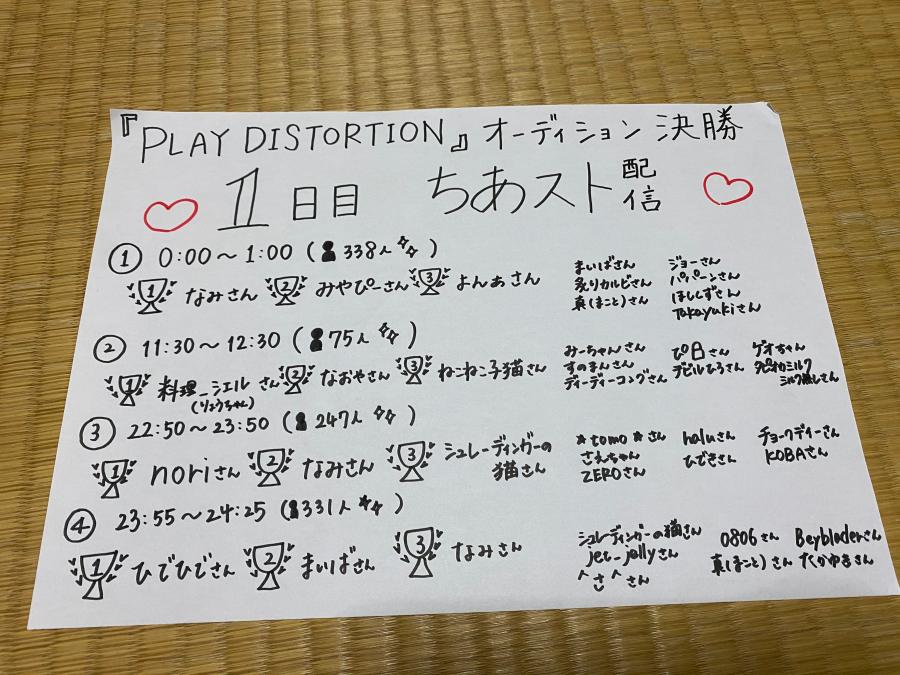 『PLAY DISTORTION』オーディション 決勝
1日目 ちあスト配信
① 0:00〜1:00 (338人)
1 なみさん 2 みやぴーさん 3 よんあさん
まいばさん ジョーさん
炙りカルビさん パパーンさん
真(まこと)さん ほしくずさん
Takayukiさん
② 11:30〜12:30 (75人)
1 料理_シエルさん 2 なおやさん 3 ねこねこ子猫さん
(りょうちゃん)
みーちゃんさん ぴ日さん ゲオちゃん
すのまんさん デビルひろさん タピオカミルク
ディーディーコングさん ミルク無しさん
③ 22:50〜23:50 (247人)
1 noriさん 2 なみさん 3 シュレーディンガーの
猫さん
*tomo*さん haluさん チョークディーさん
さえちゃん ひできさん KOBAさん
ZEROさん
④ 23:55〜24:25 (331人)
1 ひでひでさん 2 まいばさん 3 なみさん
シュレーディンガーの猫さん 0806さん Beybladerさん
jet-jellyさん 真(まこと)さん たかゆきさん
^さ^さん